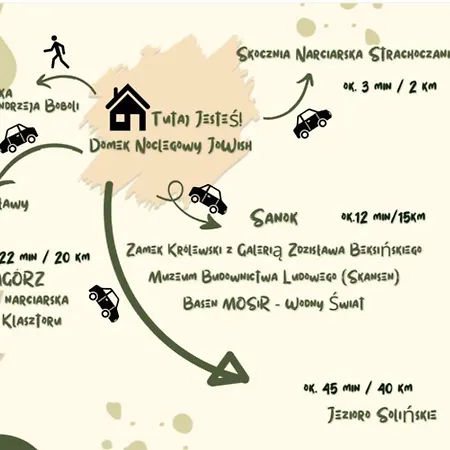 Skocznia Narciarska Strachoczani
ok. 3 min / 2 km
Tutaj Jesteś!
Domek Noclegowy JoWish
ka
ndrzeja Boboli
awy
Sanok ok.12 min/15km
Zamek Królewski z Galerią Zdzisława Beksińskiego
Muzeum Budownictwa Ludowego (Skansen)
Basen MOSiR - Wodny Świat
22 min / 20 km
górz
narciarska
Klasztoru
ok. 45 min / 40 km
Jezioro Solińskie